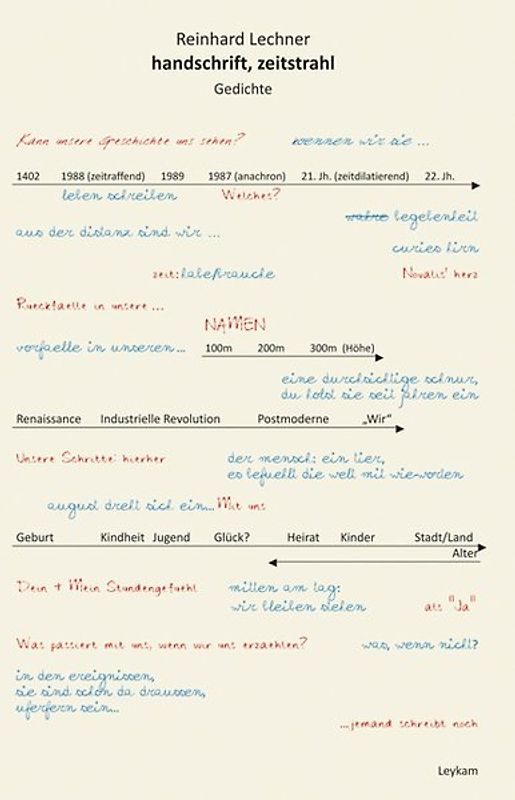 Reinhard Lechner
handschrift, zeitstrahl
Gedichte
Kann unsere Geschichte uns sehen? wennen wir sie ...
1402 1988 (zeitraffend) 1989 1987 (anachron) 21. Jh. (zeitdilatierend) 22. Jh.
leben schreiben Welches?
wahre begebenheit
aus der distanz sind wir ...
curies hirn
zeit: Novalis' herz
Rueckfaelle in unsere ...
NAMEN
vorfaelle in unseren... 100m 200m 300m (Höhe)
eine durchsichtige schnur,
du holst sie seit jahren ein
Renaissance Industrielle Revolution Postmoderne „Wir"
Unsere Schritte: hierher der mensch: ein tier,
es befuellt die welt mit wie-worten
august dreht sich ein... Mit uns
Geburt Kindheit Jugend Glück? Heirat Kinder Stadt/Land
Alter
Dein + Mein Stundengefuehl mitten am tag:
wir bleiben stehen als "Ja"
Was passiert mit uns, wenn wir uns erzaehlen? was, wenn nicht?
in den ereignissen,
sie sind schon da draussen,
uferfern sein...
...jemand schreibt noch
Leykam